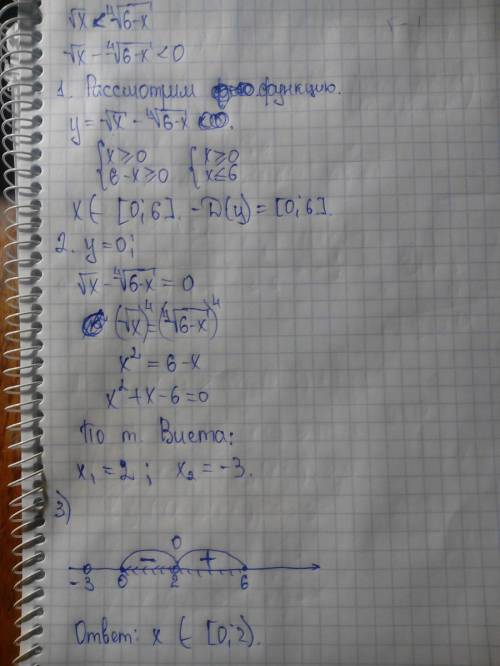 √x < ⁴√6-x
√x - ⁴√6-x < 0
1. Рассмотрим функцию.
y = √x - ⁴√6-x
{x ≥ 0 {x ≥ 0
{6 - x ≥ 0 {x ≤ 6
x ∈ [0; 6]. - D(y) = [0; 6].
2. y = 0;
√x - ⁴√6-x = 0
(√x)⁴ = (⁴√6-x)⁴
x² = 6 - x
x² + x - 6 = 0
По т. Виета:
x₁ = 2 ; x₂ = -3.
3)
- 0 +
-3 0 2 6
Ответ: x ∈ [0; 2).